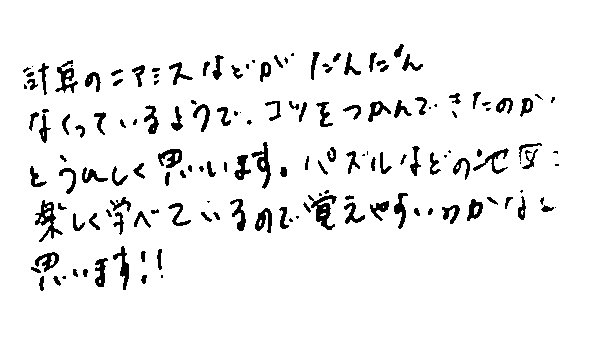 計算のニアミスなどがだんだん
なくっているようで、コツをつかんできたのか
とうれしく思います。パズルなどの地図に
楽しく学べているので覚えやすいのかなと
思います!!